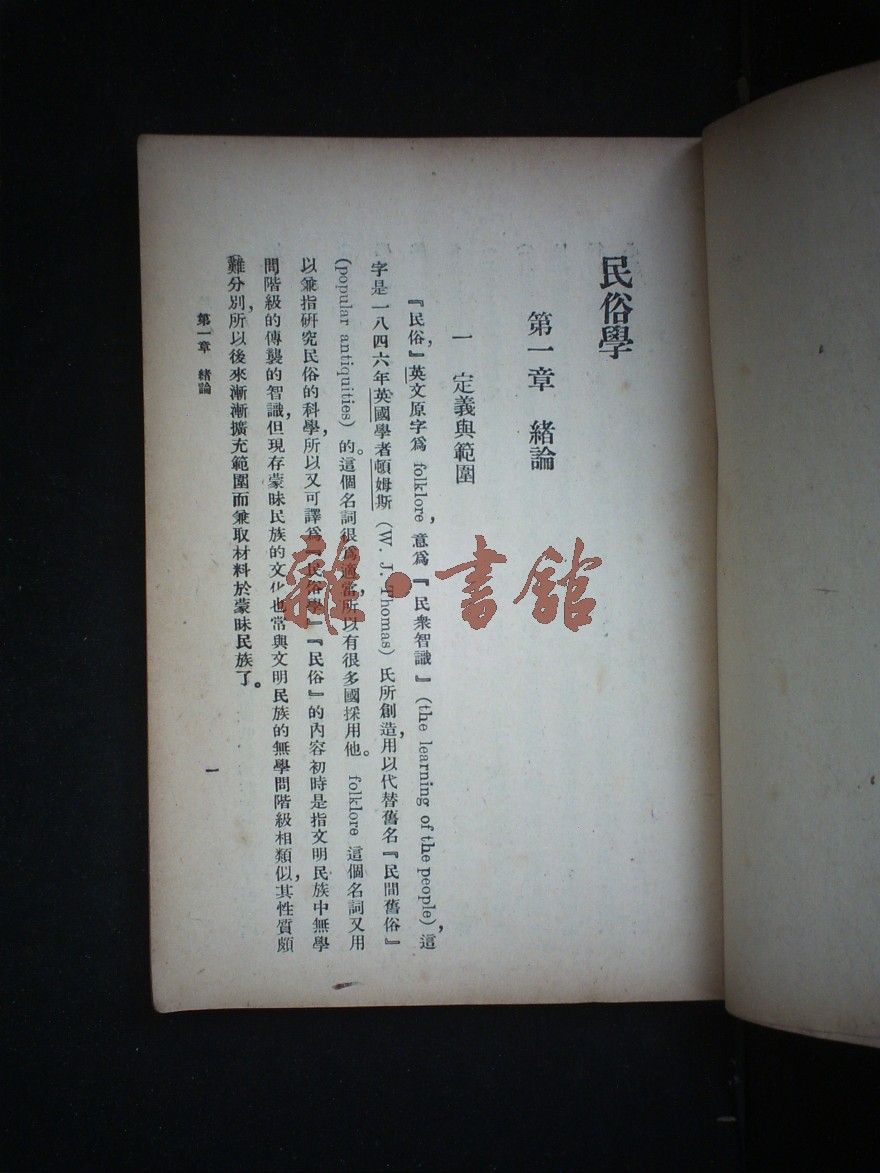 民俗學
第一章 緒論
一 定義與範圍
『民俗,』英文原字爲 folklore, 意爲『民衆智識』(the learning of the people), 這
字是一八四六年英國學者頓姆斯 (W. J. Thomas) 氏所創造,用以代替舊名『民間舊俗』
(popular antiquities) 的。這個名詞很爲適當,所以有很多國採用他。 folklore 這個名詞又用
以兼指硏究民俗的科學,所以又可譯爲『民俗學』『民俗』的內容初時是指文明民族中無學
問階級的傳襲的智識,但現存蒙昧民族的文化也常與文明民族的無學問階級相類似,其性質頗
難分別,所以後來漸漸擴充範圍而兼取材料於蒙昧民族了。
第一章 緒論
一
雜·書館